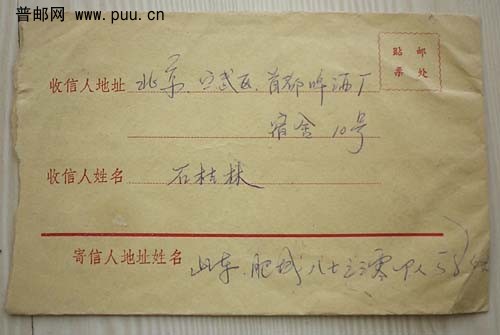 普邮网 www.puu.cn
贴邮
票处
收信人地址 北京.宣武区.首都啤酒厂
宿舍 10号
收信人姓名 石桂林
寄信人地址姓名 山东.肥城八七三零